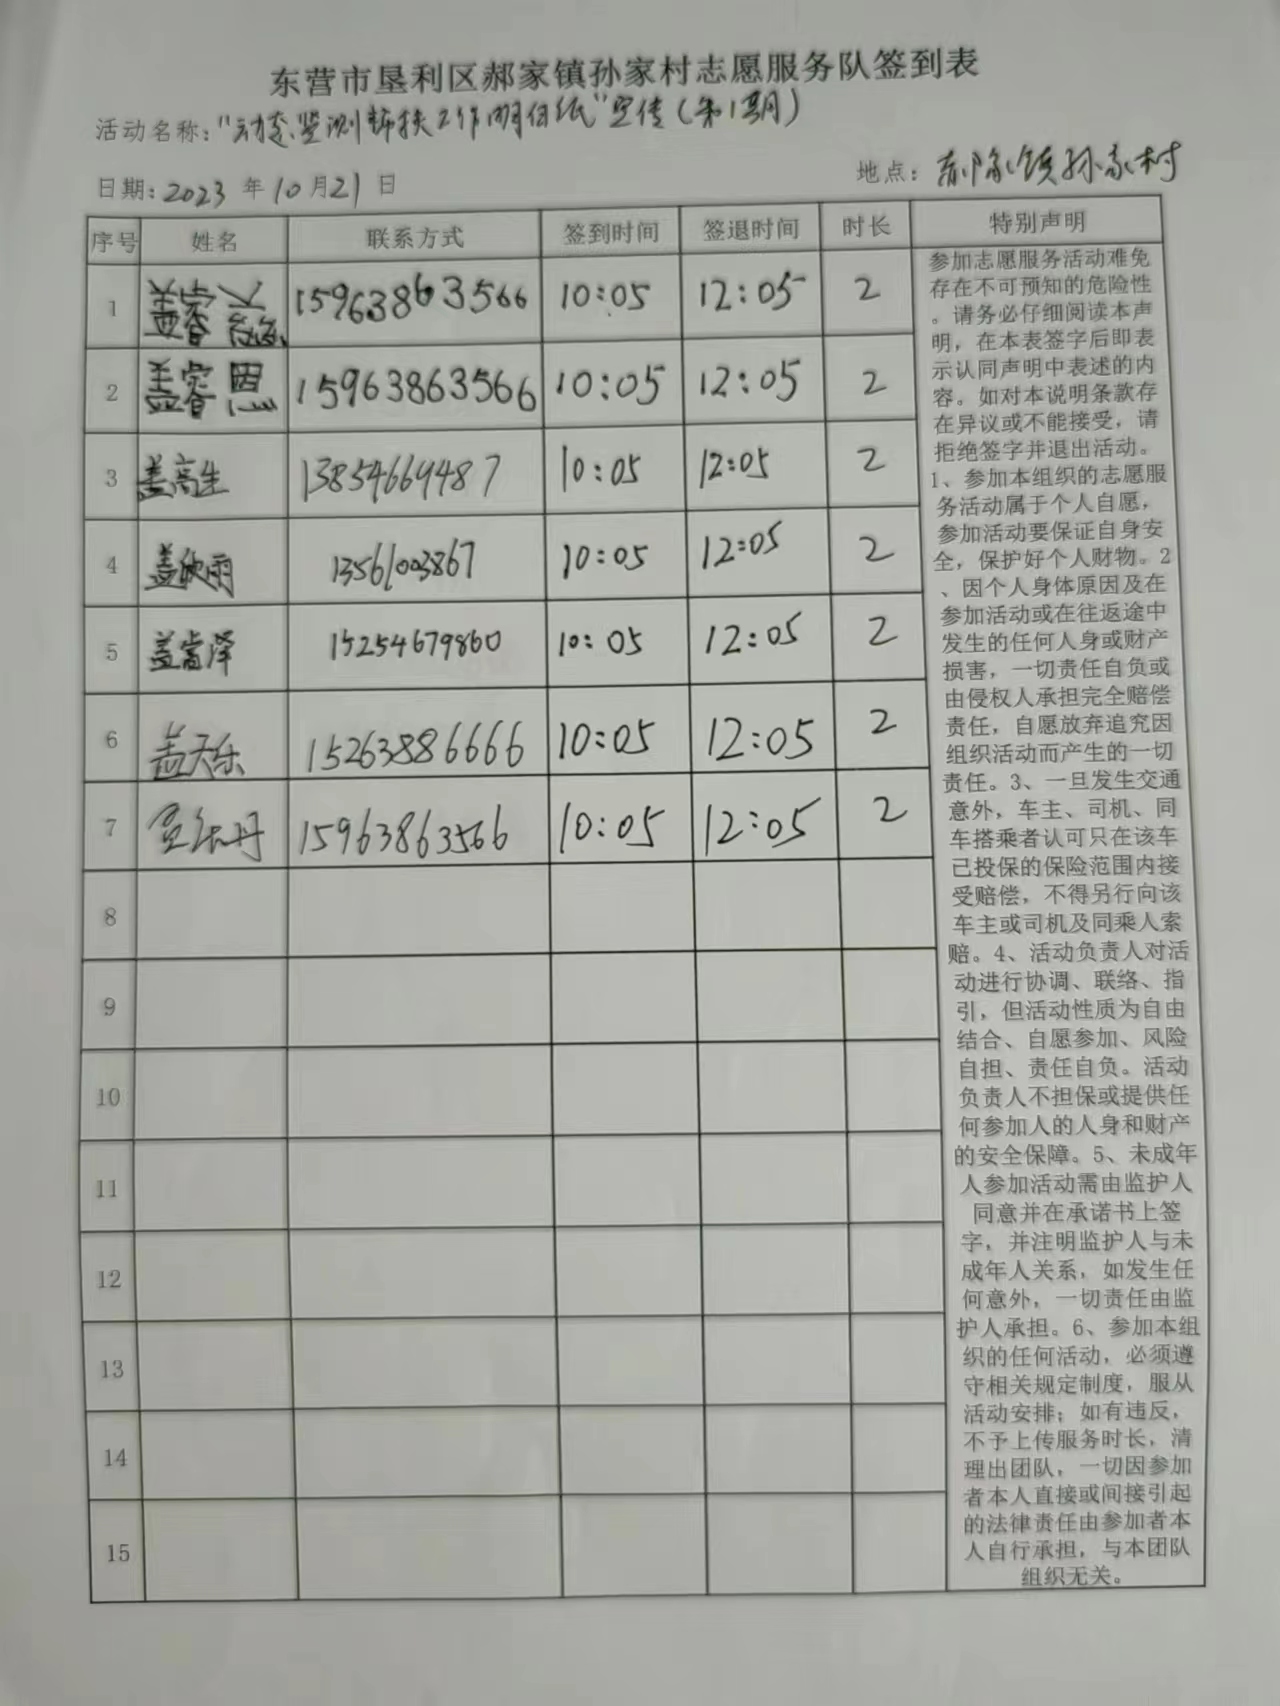 东营市垦利区郝家镇孙家村志愿服务队签到表
活动名称："动态监测帮扶工作明白纸"宣传（第1期）
日期：2023年10月21日 地点：郝家镇孙家村
序号 姓名 联系方式 签到时间 签退时间 时长 特别声明
1 盖睿 15963863566 10:05 12:05 2
2 盖睿恩 15963863566 10:05 12:05 2
3 盖高生 13854669487 10:05 12:05 2
4 盖欣雨 13561003867 10:05 12:05 2
5 盖 泽 15254679860 10:05 12:05 2
6 盖天乐 15263886666 10:05 12:05 2
7 15963863566 10:05 12:05 2
8
9
10
11
12
13
14
15
参加志愿服务活动难免
存在不可预知的危险性
。请务必仔细阅读本声
明，在本表签字后即表
示认同声明中表述的内
容。如对本说明条款存
在异议或不能接受，请
拒绝签字并退出活动。
1、参加本组织的志愿服
务活动属于个人自愿，
参加活动要保证自身安
全，保护好个人财物。2
、因个人身体原因及在
参加活动或在往返途中
发生的任何人身或财产
损害，一切责任自负或
由侵权人承担完全赔偿
责任，自愿放弃追究因
组织活动而产生的一切
责任。3、一旦发生交通
意外，车主、司机、同
车搭乘者认可只在该车
已投保的保险范围内接
受赔偿，不得另行向该
车主或司机及同乘人索
赔。4、活动负责人对活
动进行协调、联络、指
引，但活动性质为自由
结合、自愿参加、风险
自担、责任自负。活动
负责人不担保或提供任
何参加人的人身和财产
的安全保障。5、未成年
人参加活动需由监护人
同意并在承诺书上签
字，并注明监护人与未
成年人关系，如发生任
何意外，一切责任由监
护人承担。6、参加本组
织的任何活动，必须遵
守相关规定制度，服从
活动安排；如有违反，
不予上传服务时长，清
理出团队，一切因参加
者本人直接或间接引起
的法律责任由参加者本
人自行承担，与本团队
组织无关。